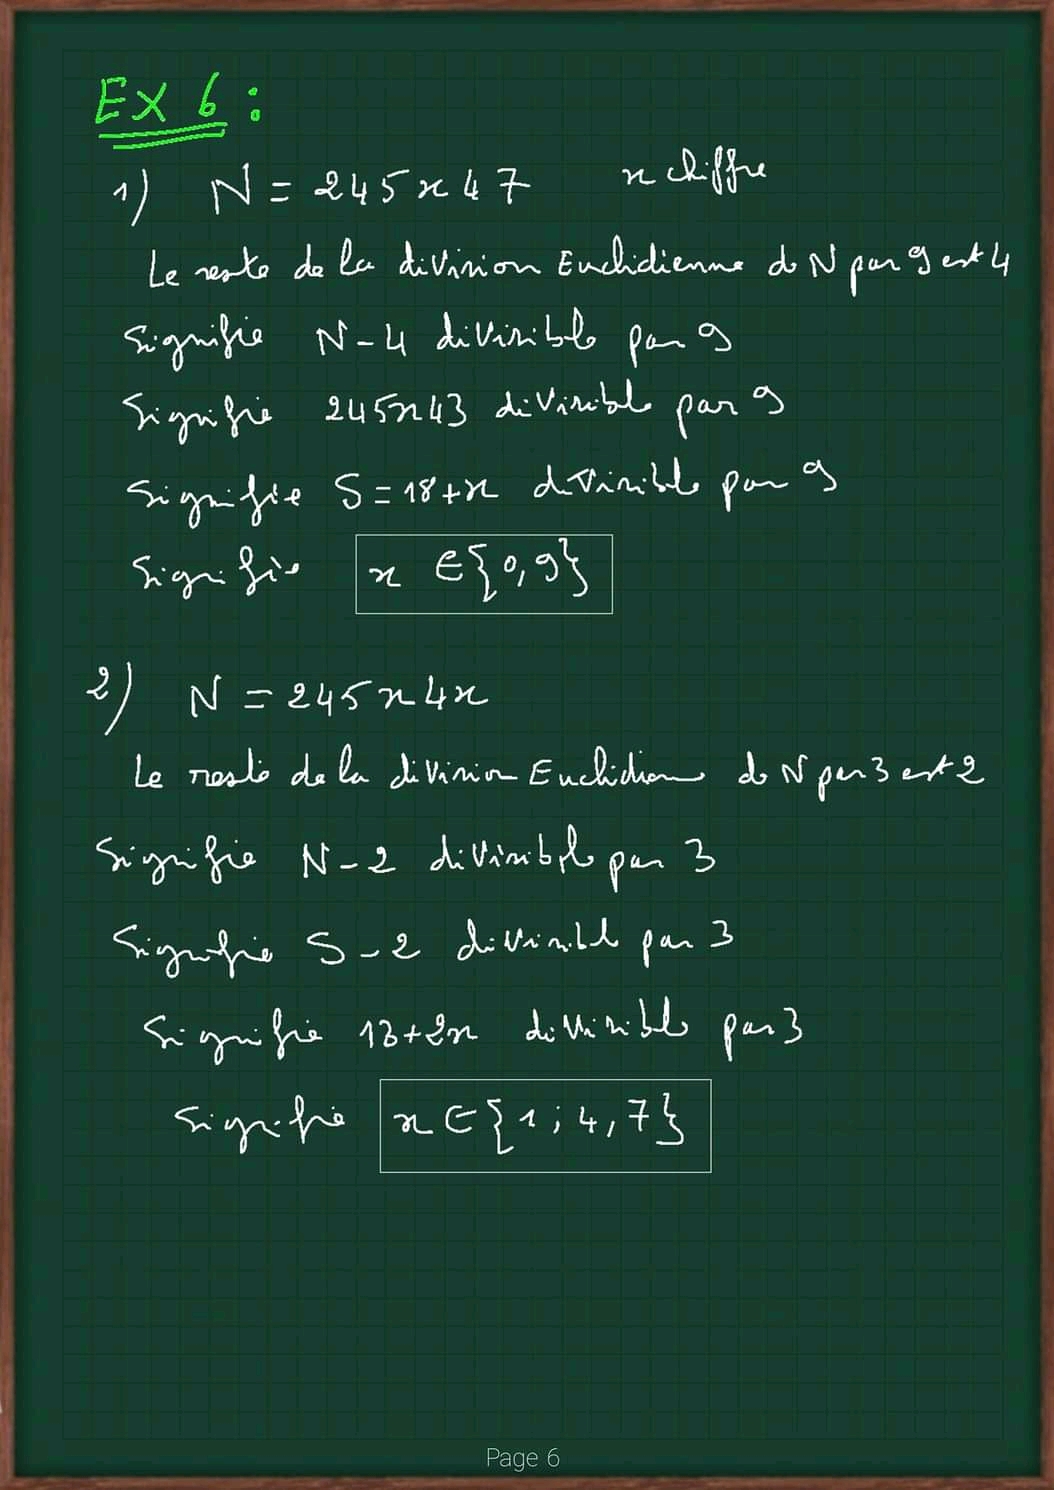 EX 6 :
1) N = 245x47 x chiffre
Le reste de la division Euclidienne de N par 9 est 4
Signifie N-4 divisible par 9
Signifie 245x43 divisible par 9
Signifie S = 18+x divisible par 9
Signifie x ∈ {0,9}
2) N = 245x4x
Le reste de la division Euclidienne de N par 3 est 2
Signifie N-2 divisible par 3
Signifie S-2 divisible par 3
Signifie 13+2x divisible par 3
Signifie x ∈ {1;4,7}
Page 6